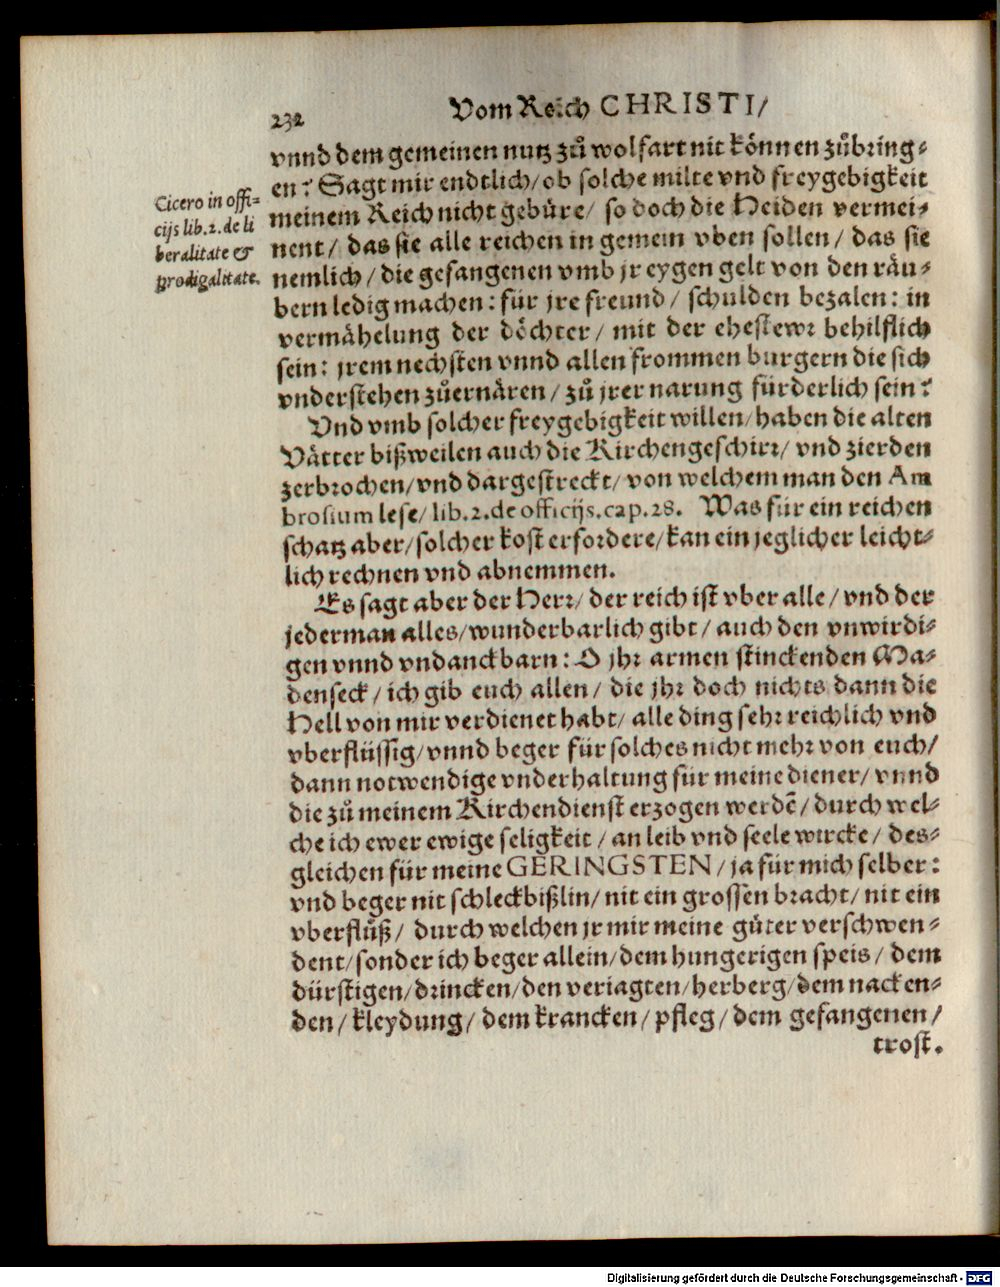 232
Vom Reich CHRISTI/
vnnd dem gemeinen nutz zů wolfart nit können zůbring⸗
en? Sagt mir endtlich/ ob solche milte vnd freygebigkeit
meinem Reich nicht gebüre/ so doch die Heiden vermei⸗
nent/ das sie alle reichen in gemein vben sollen/ das sie
nemlich/ die gefangenen vmb jr eygen gelt von den räu⸗
bern ledig machen: für jre freund/ schulden bezalen: in
vermähelung der döchter/ mit der ehestewr behilflich
sein: jrem nechsten vnnd allen frommen burgern die sich
vnderstehen zůernären/ zů jrer narung fürderlich sein?
Cicero in offi⸗
cijs lib.2. de li
beralitate &
prodigalitate.
Vnd vmb solcher freygebigkeit willen/ haben die alten
Vätter bißweilen auch die Kirchengeschirr/ vnd zierden
zerbrochen/ vnd dargestreckt/ von welchem man den Am
brosium lese/ lib.2.de officijs.cap.28. Was für ein reichen
schatz aber/ solcher kost erfordere/ kan ein jeglicher leicht⸗
lich rechnen vnd abnemmen.
Es sagt aber der Herr/ der reich ist vber alle/ vnd der
jederman alles/ wunderbarlich gibt/ auch den vnwirdi⸗
gen vnnd vndanckbarn: O jhr armen stinckenden Ma⸗
denseck/ ich gib euch allen/ die jhr doch nichts dann die
Hell von mir verdienet habt/ alle ding sehr reichlich vnd
vberflüssig/ vnnd beger für solches nicht mehr von euch/
dann notwendige vnderhaltung für meine diener/ vnnd
die zů meinem Kirchendienst erzogen werdē/ durch wel⸗
che ich ewer ewige seligkeit/ an leib vnd seele wircke/ des⸗
gleichen für meine GERINGSTEN/ ja für mich selber:
vnd beger nit schleckbißlin/ nit ein grossen bracht/ nit ein
vberflůß/ durch welchen jr mir meine güter verschwen⸗
dent/ sonder ich beger allein/ dem hungerigen speis/ dem
dürstigen/ drincken/ den veriagten/ herberg/ dem nacken⸗
den/ kleydung/ dem krancken/ pfleg/ dem gefangenen/
trost.
Digitalisierung gefördert durch die Deutsche Forschungsgemeinschaft - DFG